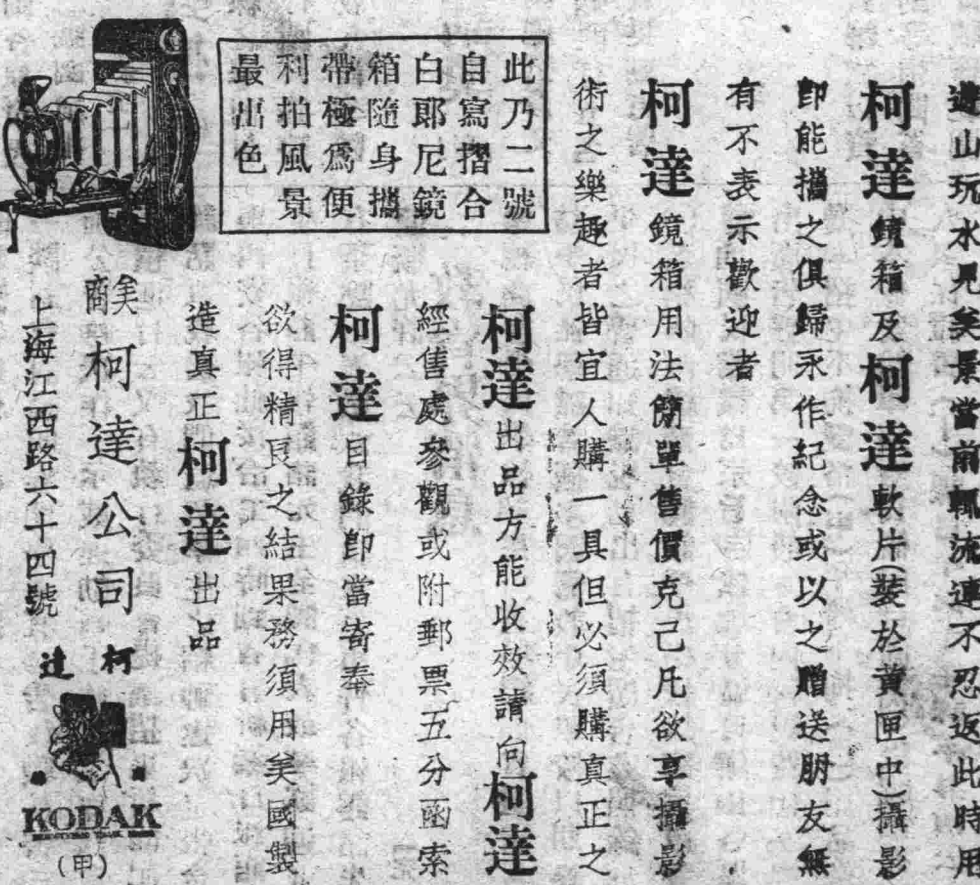 遊山玩水見美景當前輒流連不忍返此時用
柯達鏡箱及柯達軟片(裝於黃匣中)攝影
卽能攜之俱歸永作紀念或以之贈送朋友無
有不表示歡迎者
柯達鏡箱用法簡單售價克己凡欲享攝影
術之樂趣者皆宜人購一具但必須購真正之
柯達出品方能收效請向柯達
經售處參觀或附郵票五分函索
柯達目錄卽當寄奉
欲得精良之結果務須用美國製
造真正柯達出品
此乃二號
自寫摺合
白郎尼鏡
箱隨身攜
帶極爲便
利拍風景
最出色
美商
柯達公司
上海江西路六十四號
柯達
KODAK
(甲)